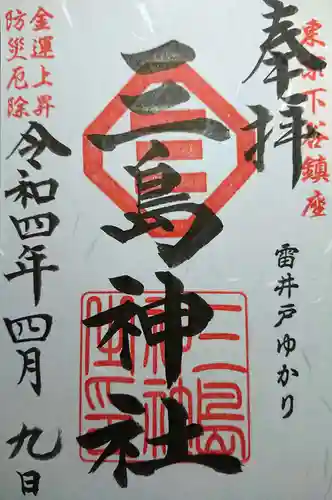 東京下谷鎮座
奉拝
雷井戸ゆかり
三島神社
三島神社之印
金運上昇
防災厄除
令和四年四月九日